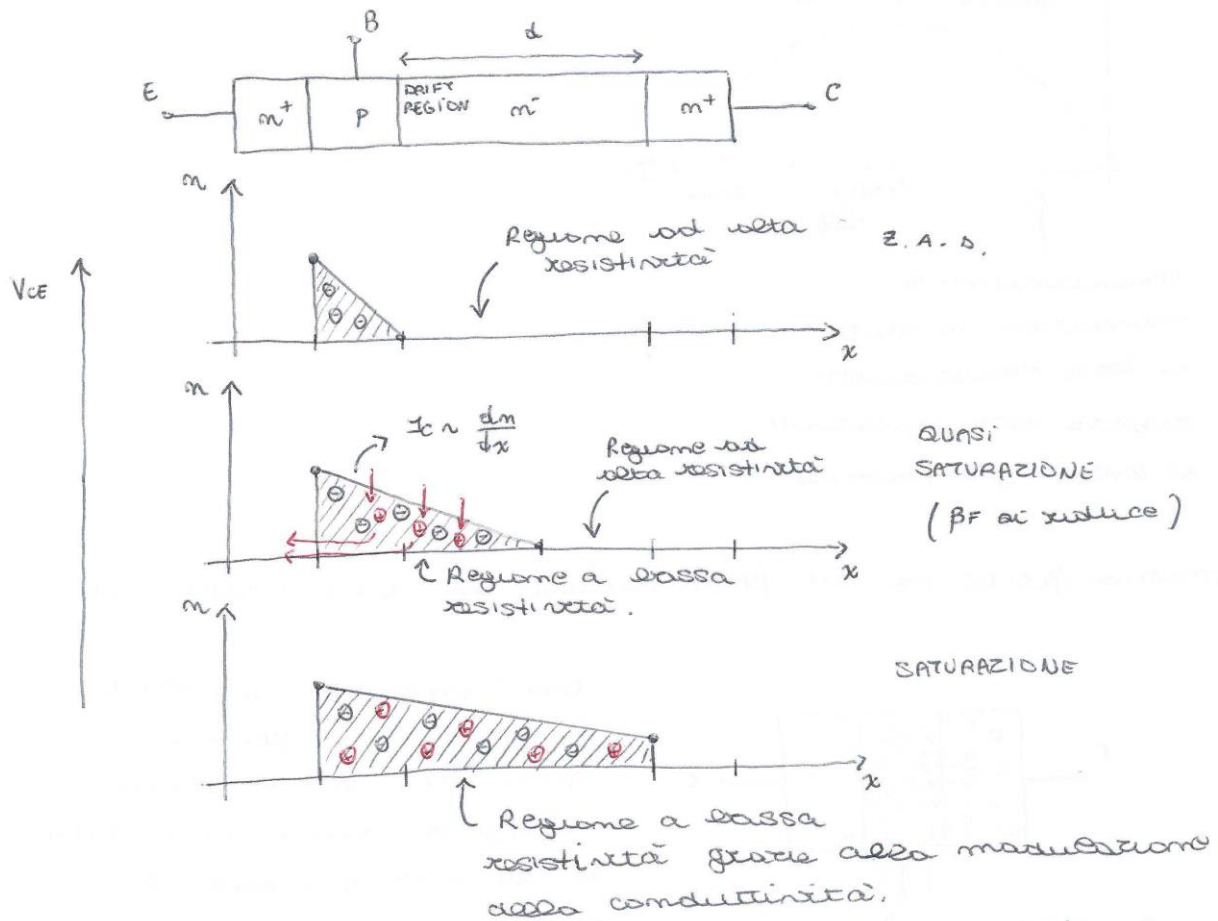 B
d
E
n+
P
DRIFT
REGION
n-
n+
C
n
Regione ad alta
resistività
Z.A.D.
VCE
x
n
IC ~ dn/dx
Regione ad
alta resistività
QUASI
SATURAZIONE
(βF si riduce)
x
Regione a bassa
resistività.
n
SATURAZIONE
x
Regione a bassa
resistività grazie alla modulazione
della conduttività.